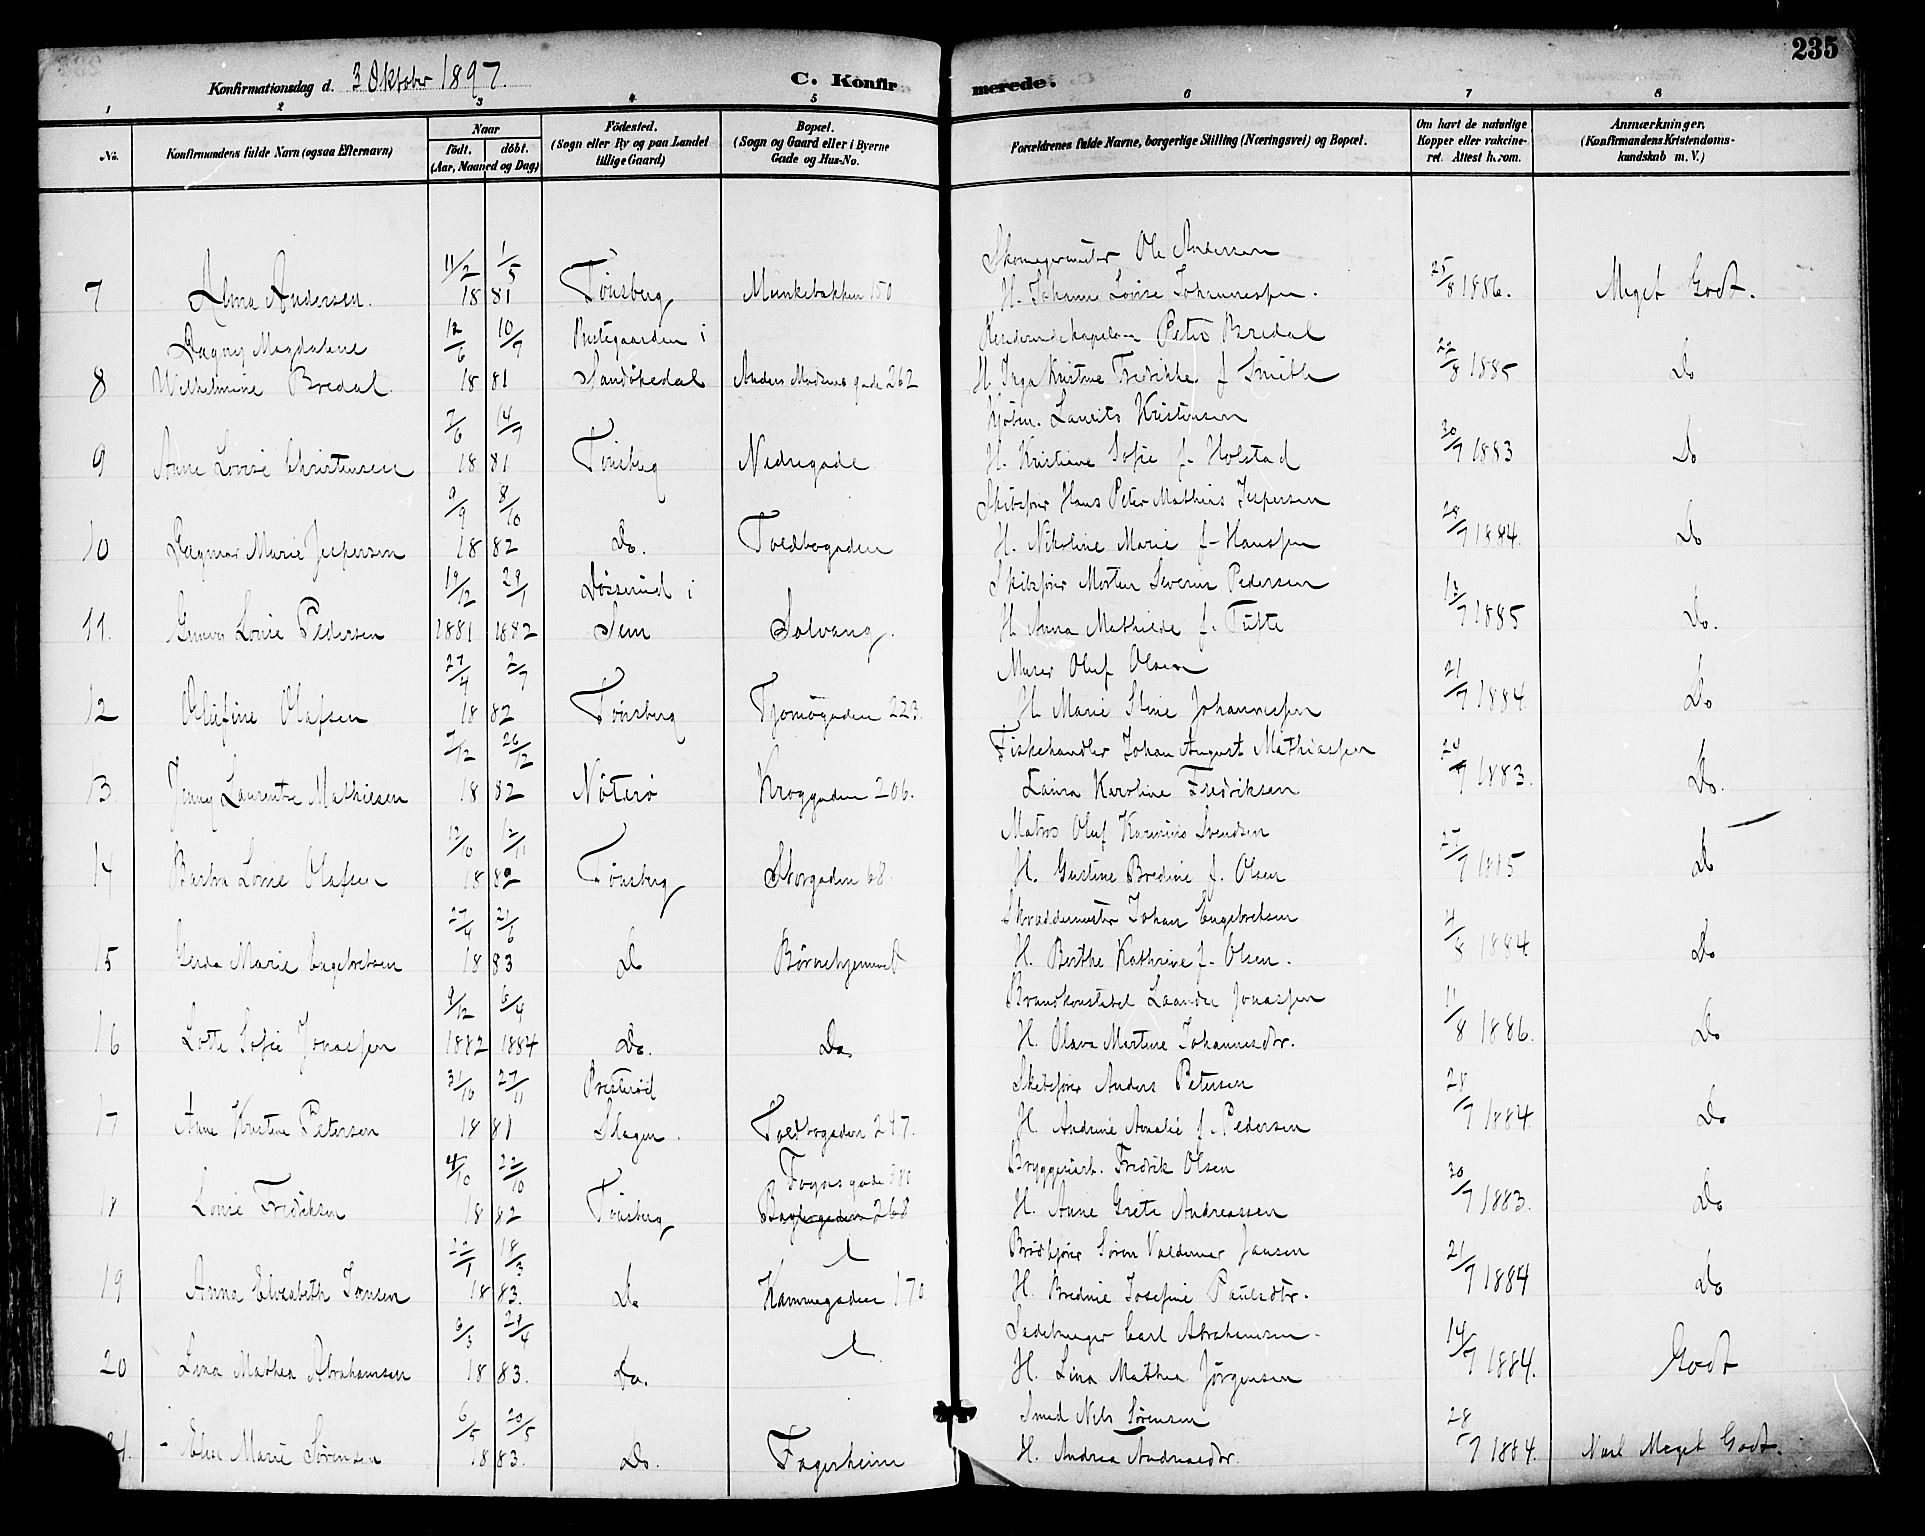 235
Konfirmationsdag d. 3 Oktober 1897.
C. Konfirmerede.
1 2 3 4 5 6 7 8
No.
Konfirmandens fulde Navn (ogsaa Efternavn)
Naar
födt. döbt.
(Aar, Maaned og Dag)
Födested.
(Sogn eller By og paa Landet
tillige Gaard)
Bopæl.
(Sogn og Gaard eller i Byerne
Gade og Hus-No.
Forældrenes fulde Navne, borgerlige Stilling (Næringsvei) og Bopæl.
Om havt de naturlige
Kopper eller vakcine-
ret. Attest h.rom.
Anmærkninger.
(Konfirmandens Kristendoms-
kundskab m. V.)
11/2 1/5 Skomagermester Ole Andersen
7 Alma Andersen. 18 81 Tönsberg Munkebakken 150 H. Johanne Lovise Johannessen. 25/8 1886. Meget Godt.
Dagny Magdalene 12/6 10/7 Prestegaarden i Peter Bredal
8 Wilhelmine Bredal 18 81 Sandökedal Anders Madsens gade 262 H. Inga Kristine Fredrikke f Smith 22/8 1885 Do
7/6 14/7 Laurits Kristensen
9 Anne Lovise Christensen 18 81 Tönsberg Nedregade H. Kristiane Sofie f. Holstad 30/7 1883 Do
9/9 8/10 Skibsförer Hans Peter Mathias Jespersen
10 Dagmar Marie Jespersen 18 82 Do. Toldbogaden H. Nikoline Marie f. Hanssen 28/7 1884. Do
19/12 29/1 Dösserud i Skibsförer Morten Severin Pedersen
11. Gunvor Lovise Pedersen 1881 1882 Sem Solvang. H. Anna Mathilde f. Tufte 13/7 1885 Do.
27/4 2/7 Murer Oluf Olsen
12 Olufine Olafsen 18 82 Tönsberg Tjömögaden 223. H. Marie Stine Johannessen 21/7 1884 Do
7/12 26/12 Fiskehandler Johan August Mathiassen
13 Jenny Laurentze Mathisen 18 82 Nöterö Kroggaden 206. Laura Karoline Fredriksen 24/7 1883. Do.
12/10 12/11 Matros Oluf Svendsen
14 Lovise Olafsen 18 82 Tönsberg Storgaden 68. H. Gustine Bredine f. Olsen Do
27/4 21/6 Skræddermester Johan Engebretsen
15 Gerda Marie Engebretsen 18 83 Do Börnehjemmet H. Berthe Kathrine f. Olsen. 4/8 1884 Do
9/12 6/4 Brandkonstabel Jonassen
16 Lotte Sofie Jonassen 1882 1884 Do. Do. H. Olava Martine Johannesdtr. 11/8 1886. Do
31/10 27/11 Presteröd Skibsförer Anders Petersen
17 Anne Kristine Petersen 18 81 Slagen. Toldbogaden 247. H. Andrine Amalie f. Pedersen 28/7 1884. Do
4/10 22/10 Foynsgade 380 Bryggeriarb. Fredrik Olsen
18 Lovise Fredriksen 18 82 Tönsberg Baglergaden 268 H. Anne Grete Andreassen 30/7 1883. Do
22/1 18/3 Brödkjörer Sören Valdemar Jansen
19 Anna Elisabeth Jansen 18 83. Do Kammegaden 170 H. Bredine Josefine Paulsdtr. 21/7 1884 Do
6/3 29/4 Sadelmager Carl Abrahamsen.
20 Lina Mathea Abrahamsen 18 83. Do. H. Lina Mathea Jörgensen 14/7 1884. Godt
6/5 20/5 Smed Nels Sörensen
21. Elise Marie Sörensen 18 83. Do. Fagerheim H. Andrea Andreasdtr. 28/7 1884. Næsl Meget Godt.